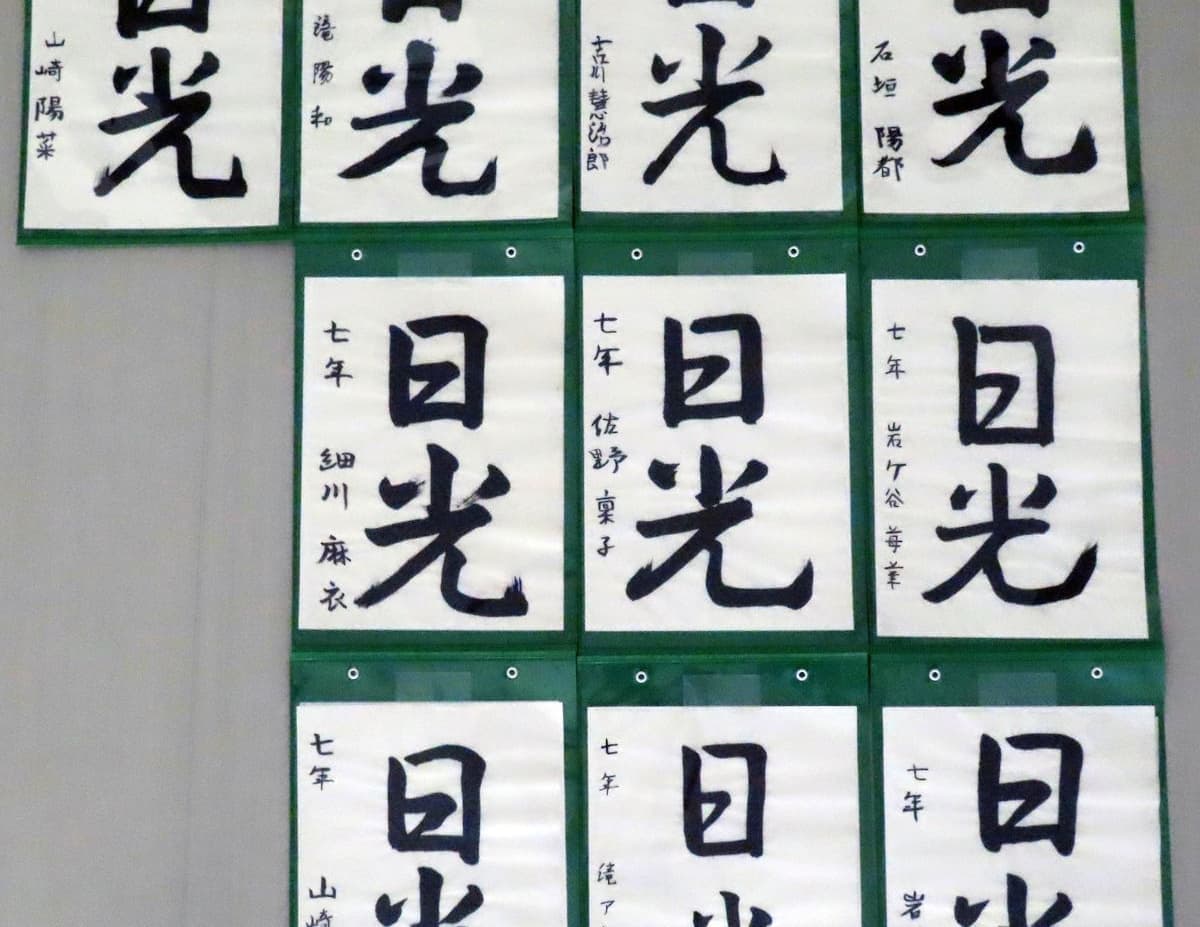 日光
山崎陽菜
日光
滝陽和
日光
吉川慧治郎
日光
石垣 陽都
日光
七年 細川 麻衣
日光
七年 佐野 稟子
日光
七年 岩ケ谷 苺
日光
七年 山崎
日光
七年 滝ア
日光
七年 岩